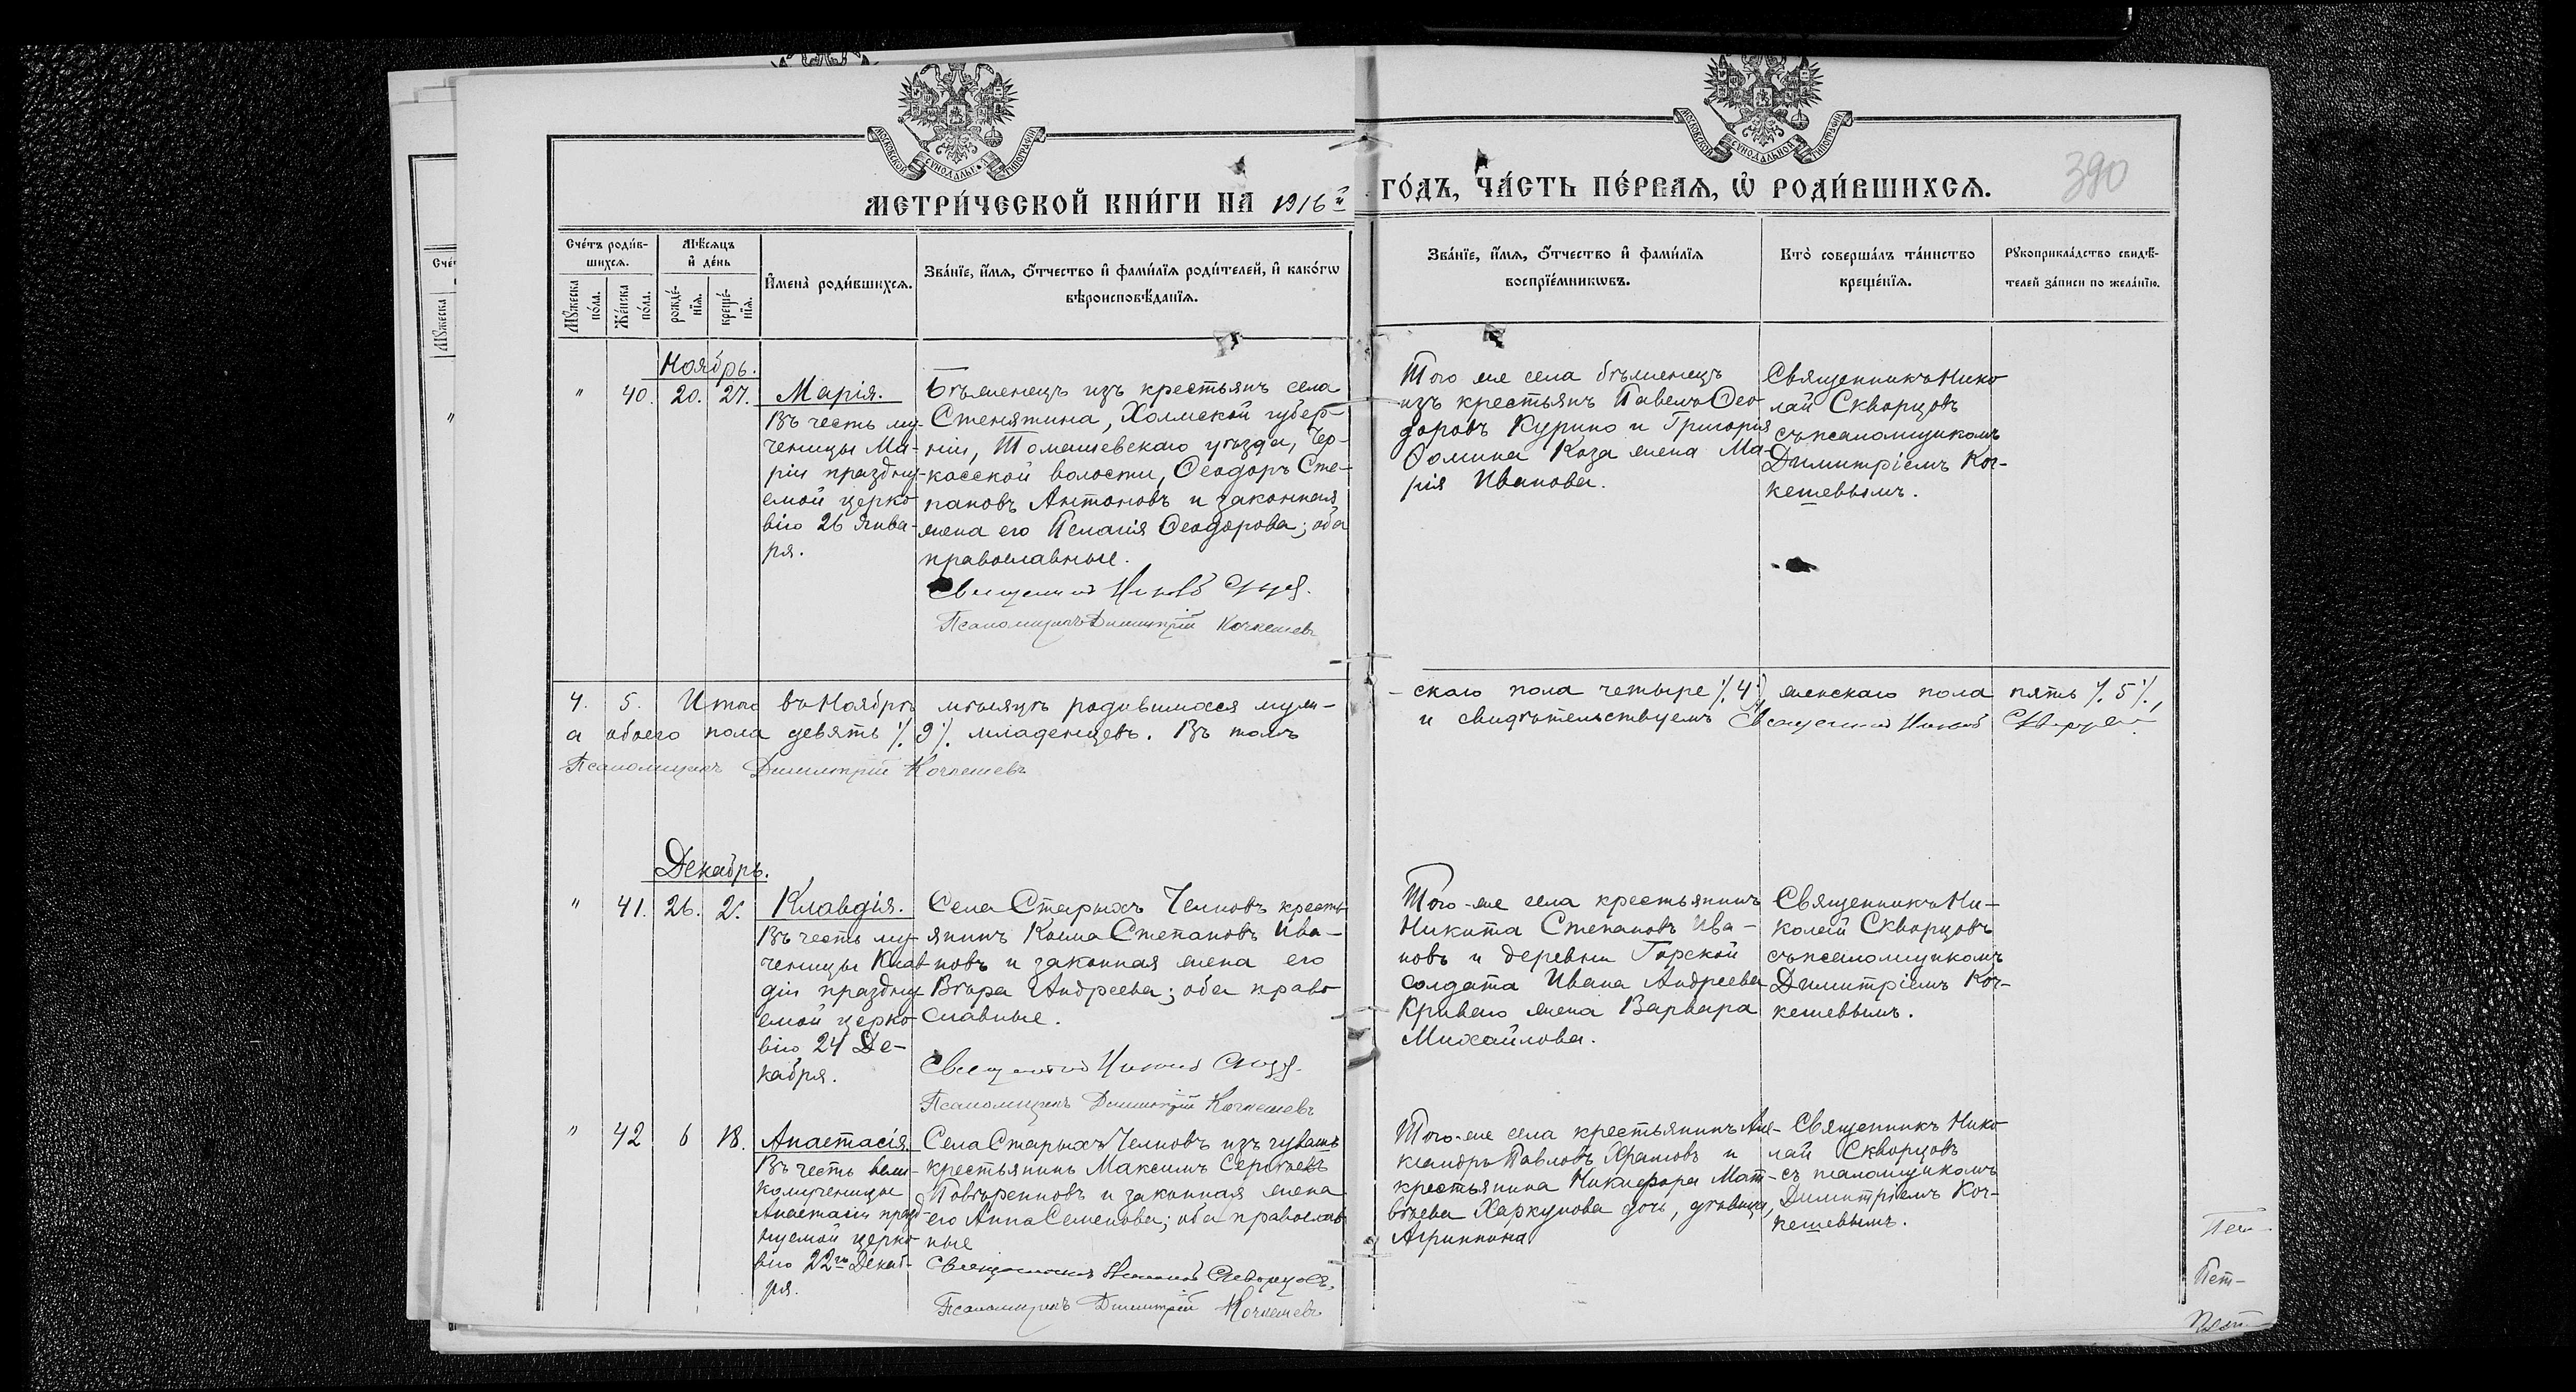 МОСКОВСКОЙ СѴНОДАЛЬНОЙ ТИПОГРАФІИ
МОСКОВСКОЙ СѴНОДАЛЬНОЙ ТИПОГРАФІИ
МЕТРИ́ЧЕСКОЙ КНИ́ГИ НА 1916й ГО́ДЪ, ЧА́СТЬ ПЕ́РВАѦ, Ѡ҆ РОДИ́ВШИХСѦ.
390
Сче́тъ роди́в-
шихсѧ.
Мꙋ́жеска по́ла.
Же́нска по́ла.
Мѣ́сѧцъ
и҆ де́нь
рожде́-
нїѧ.
креще́-
нїѧ.
И҆мена̀ роди́вшихсѧ.
Зва́нїе, и҆́мѧ, ѻ҆́тчество и҆ фами́лїѧ роди́телей, и҆ како́гѡ
вѣроисповѣ́данїѧ.
Зва́нїе, и҆́мѧ, ѻ҆́тчество и҆ фами́лїѧ
воспрїе́мникѡвъ.
Кто̀ соверша́лъ та́инство
креще́нїѧ.
Рꙋкоприкла́дство свидѣ́-
телей за́писи по жела́нїю.
Ноябрь.
" 40. 20. 27.
Марія.
Въ честь му-
ченицы Ма-
ріи праздну-
емой церко
вію 26 янва-
ря.
Бѣженецъ изъ крестьянъ села
Стенятина, Холмской губер-
ніи, Томашевскаго уѣзда, Чер-
касской волости, Ѳеодоръ Сте-
пановъ Антоновъ и законная
жена его Пелагія Ѳеодорова; оба
православные.
Священникъ
Псаломщикъ Димитрій Кочкешевъ
Того же села бѣженецъ
изъ крестьянъ Павелъ Ѳео
доровъ Курино и Григорія
Ѳомина Коза жена Ма-
рія Иванова.
Священникъ Нико
лай Скворцовъ
съ псаломщикомъ
Димитріемъ Коч-
кешевымъ.
4. 5. Итого въ Ноябрѣ мѣсяцѣ родившихся муж-
скаго пола четыре /.4/. женскаго пола пять /.5/.,
а обоего пола девять /.9/. младенцевъ. Въ томъ
и свидѣтельствуемъ Священникъ
Псаломщикъ Димитрій Кочкешевъ
Декабрь.
" 41. 26. 2.
Клавдія.
Въ честь му-
ченицы Клав
діи праздну-
емой церко-
вію 24 Де-
кабря.
Села Старыхъ Челновъ кресть
янинъ Косма Степановъ Ива-
новъ и законная жена его
Вѣра Андреева; оба право
славные.
Священникъ
Псаломщикъ Димитрій Кочкешевъ
Того-же села крестьянинъ
Никита Степановъ Ива-
новъ и деревни Горской
солдата Ивана Андреева
Криваго жена Варвара
Михайлова.
Священникъ Ни-
колай Скворцовъ
съ псаломщикомъ
Димитріемъ Коч-
кешевымъ.
" 42 6 18.
Анастасія.
Въ честь вели-
комученицы
Анастасіи празд-
нуемой церко-
вію 22го Декаб-
ря.
Села Старыхъ Челновъ изъ чувашъ
крестьянинъ Максимъ Сергѣевъ
и законная жена
его Анна Семенова; оба православ
ные
Священникъ Скворцовъ,
Псаломщикъ Димитрій Кочкешевъ
Того-же села крестьянинъ Але-
ксандръ Павловъ Храмовъ и
крестьянина Никифора Мат-
вѣева Харкунова дочь, дѣвица,
Агриппина
Священникъ Нико
лай Скворцовъ
съ псаломщикомъ
Димитріемъ Коч-
кешевымъ.